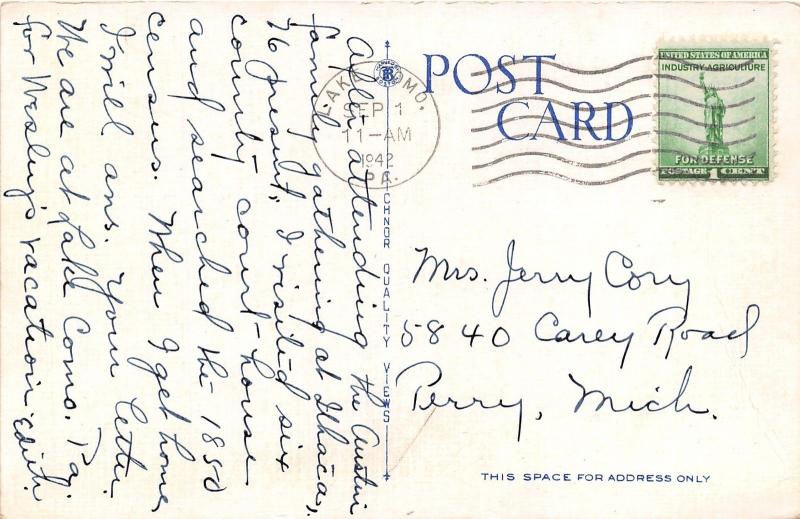 After attending the Austin
family gathering at Ithaca,
76 present, I visited six
county court-houses
and searched the 1850
census. When I get home,
I will ans. your letter.
We are at Lake Como, Pa.
for Wesley's vacation. Edith.
POST
CARD
LAKE COMO.
SEP 1
11-AM
1942
PA.
UNITED STATES OF AMERICA
INDUSTRY AGRICULTURE
FOR DEFENSE
POSTAGE 1 CENT
TICHNOR QUALITY VIEWS
Mrs. Jerry Cory
5840 Carey Road
Perry, Mich.
THIS SPACE FOR ADDRESS ONLY